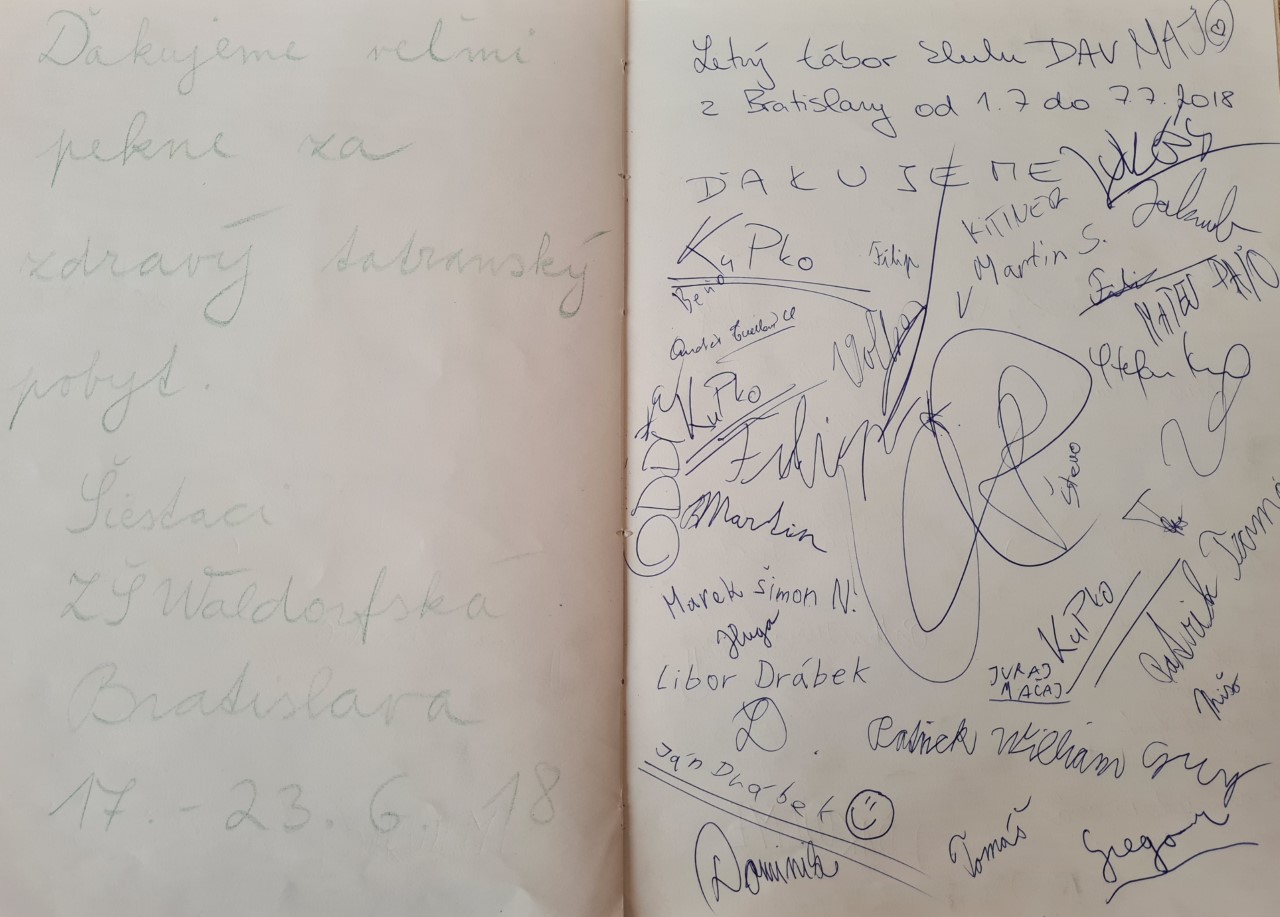 Ďakujeme veľmi
pekne za
zdravý tatranský
pobyt.
Šiestaci
ZŠ Waldorfská
Bratislava
17. - 23. 6. 18
Letný tábor klubu DAV MAJ
z Bratislavy od 1.7 do 7.7.2018
ĎAKUJEME
LUKÁŠ
Jakub
KITINER
KuPko
Filip
Martin S.
Beňo
PAŤO
MATEJ
Štefan
KuPko
Filip
Števo
Martin
Marek Šimon N.
Hugo
Libor Drábek
D
KuPko
JURAJ
MAČAJ
Patrik
Mišo
Patrick William
Ján Drábek
Dominik
Tomáš
Gregor